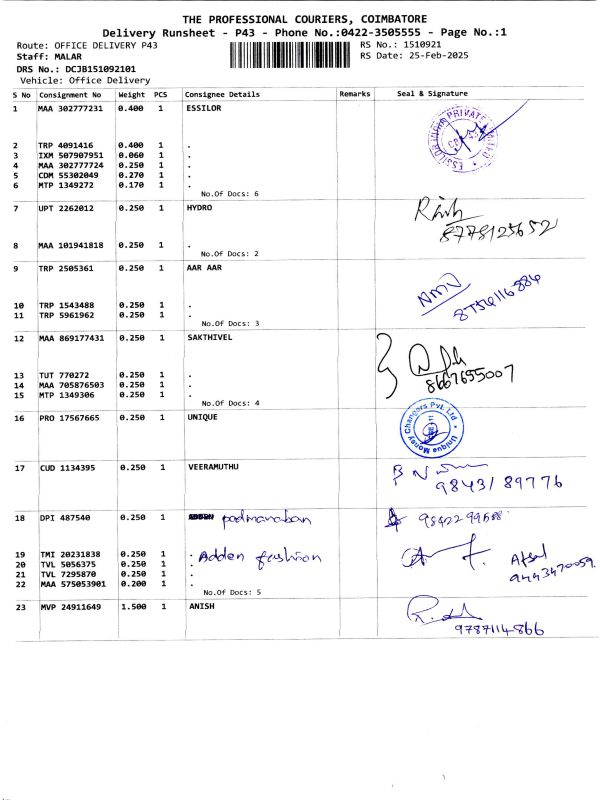 THE PROFESSIONAL COURIERS, COIMBATORE
Delivery Runsheet - P43 - Phone No.:0422-3505555 - Page No.:1
Route: OFFICE DELIVERY P43
RS No.: 1510921
Staff: MALAR
RS Date: 25-Feb-2025
DRS No.: DCJB151092101
Vehicle: Office Delivery
S No Consignment No Weight PCS Consignee Details Remarks Seal & Signature
1 MAA 302777231 0.400 1 ESSILOR
ESSILOR INDIA PRIVATE LIMITED
2 TRP 4091416 0.400 1 .
3 IXM 507907951 0.060 1 .
4 MAA 302777724 0.250 1 .
5 CDM 55302049 0.270 1 .
6 MTP 1349272 0.170 1 .
No.Of Docs: 6
7 UPT 2262012 0.250 1 HYDRO
8778125652
8 MAA 101941818 0.250 1 .
No.Of Docs: 2
9 TRP 2505361 0.250 1 AAR AAR
10 TRP 1543488 0.250 1 .
11 TRP 5961962 0.250 1 .
No.Of Docs: 3
12 MAA 869177431 0.250 1 SAKTHIVEL
8667655007
13 TUT 770272 0.250 1 .
14 MAA 705876503 0.250 1 .
15 MTP 1349306 0.250 1 .
No.Of Docs: 4
16 PRO 17567665 0.250 1 UNIQUE
Unique Money Changers Pvt. Ltd
17 CUD 1134395 0.250 1 VEERAMUTHU
98431 89776
18 DPI 487540 0.250 1 padmanaban
19 TMI 20231838 0.250 1 . Adden fashion
Afsal
9443470059
20 TVL 5056375 0.250 1 .
21 TVL 7295870 0.250 1 .
22 MAA 575053901 0.200 1 .
No.Of Docs: 5
23 MVP 24911649 1.500 1 ANISH
9787114866